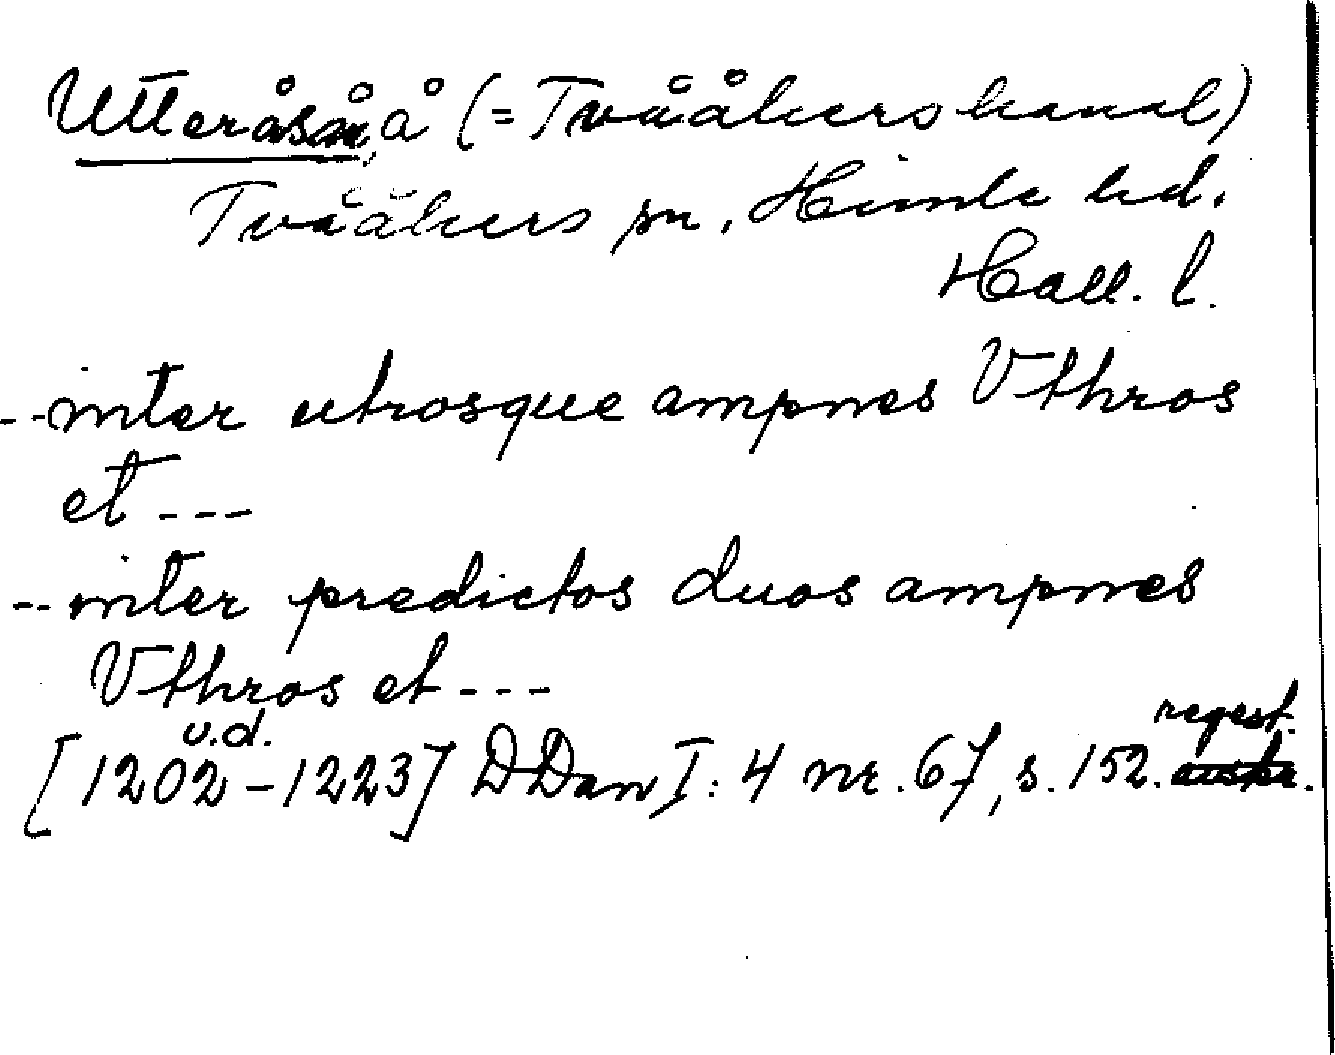 Utteråsån, å (= Tvååkers kanal)
Tvååkers sn, Himle hd.
Hall. l.
--inter utrosque ampnes Vthros
et ---
--inter predictos duos ampnes
Vthros et ---
u.d. regest.
[1202-1223] DDan I: 4 nr. 67, s. 152.